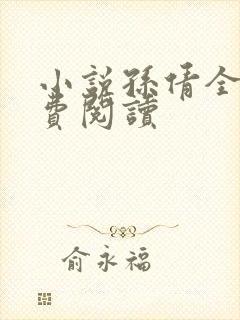 小說孫倩全
費閱讀
俞永福